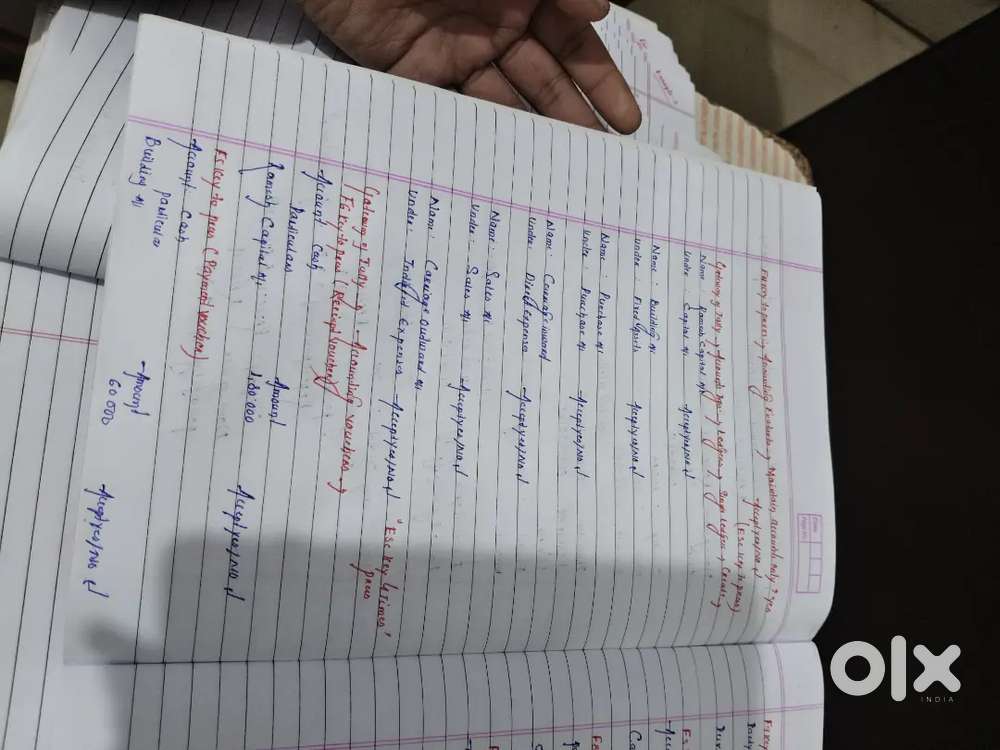 F11 key to press → Accounting Features → Maintain accounts only? yes
Accept yes/No ↲
(Esc key to press)
Gateway of Tally → Account Info → Ledgers → Single Ledger → Create →
Name: Ramesh Capital A/c
Under: Capital A/c Accept yes/No ↲
Name: Building A/c
Under: Fixed Assets Accept yes/No ↲
Name: Purchase A/c
Under: Purchase A/c Accept yes/No ↲
Name: Carriage inward
Under: Direct expenses Accept yes/No ↲
Name: Sales A/c
Under: Sales A/c Accept yes/No ↲
Name: Carriage outward A/c
Under: Indirect Expenses Accept yes/No ↲ "Esc key 4 times'
press
Gateway of Tally → Accounting vouchers →
F6 key to press (Receipt voucher)
Account Cash
Particulars Amount
Ramesh Capital A/c 1,00,000 Accept yes/No ↲
F5 key to press (Payment voucher)
Account Cash
Particular Amount
Building A/c 60000 Accept yes/No ↲
olx
INDIA